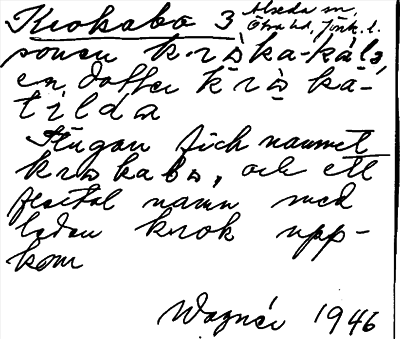 Krokabo 3 Alseda sn.
Östra hd, Jönk. l.
sonen kròka-kálə,
en dotter kròka-
tilda
Stugan fick namnet
krokabo, och ett
flertal namn med
leden krok upp-
kom
Wagnér 1946